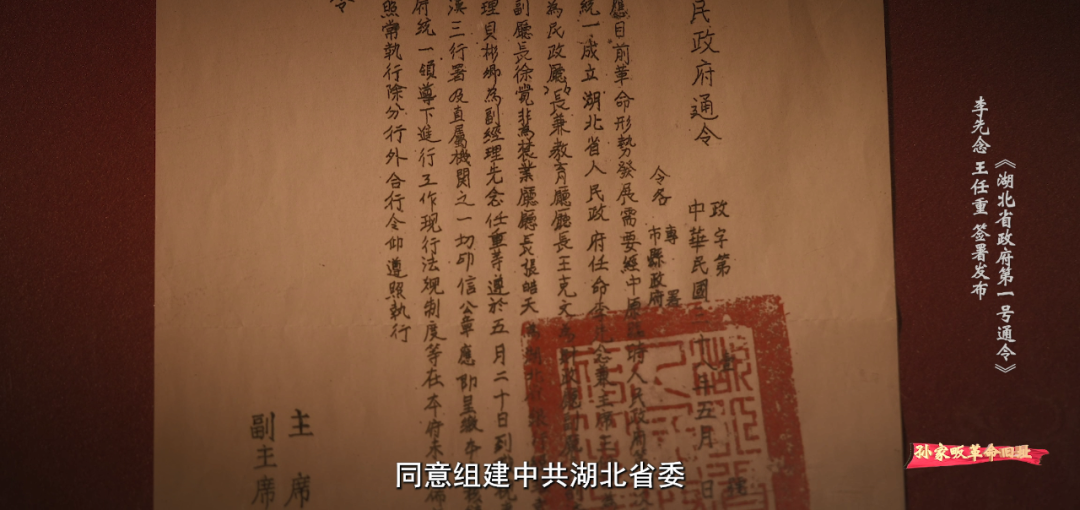 令
民政府通令
政字第
壹
号
中華民國三十八年五月 日
令各
專署
市縣政府
應目前革命形勢發展需要經中原臨時人民政府
統一成立湖北省人民政府任命李先念兼主席王
為民政廳長兼教育廳廳長王克文為財政廳
副廳長徐覺非為農業廳廳長張皓天
理貝彬卿為副經理先念任重等遵於五月二十日到
漢三行署及直屬機關之一切印信公章應即呈繳本
府統一領導下進行工作現行法規制度等在本府未
照常執行除分行外合行令仰遵照執行
主席
副主席
《湖北省政府第一号通令》
李先念 王任重 签署发布
孙家畈革命旧址
同意组建中共湖北省委